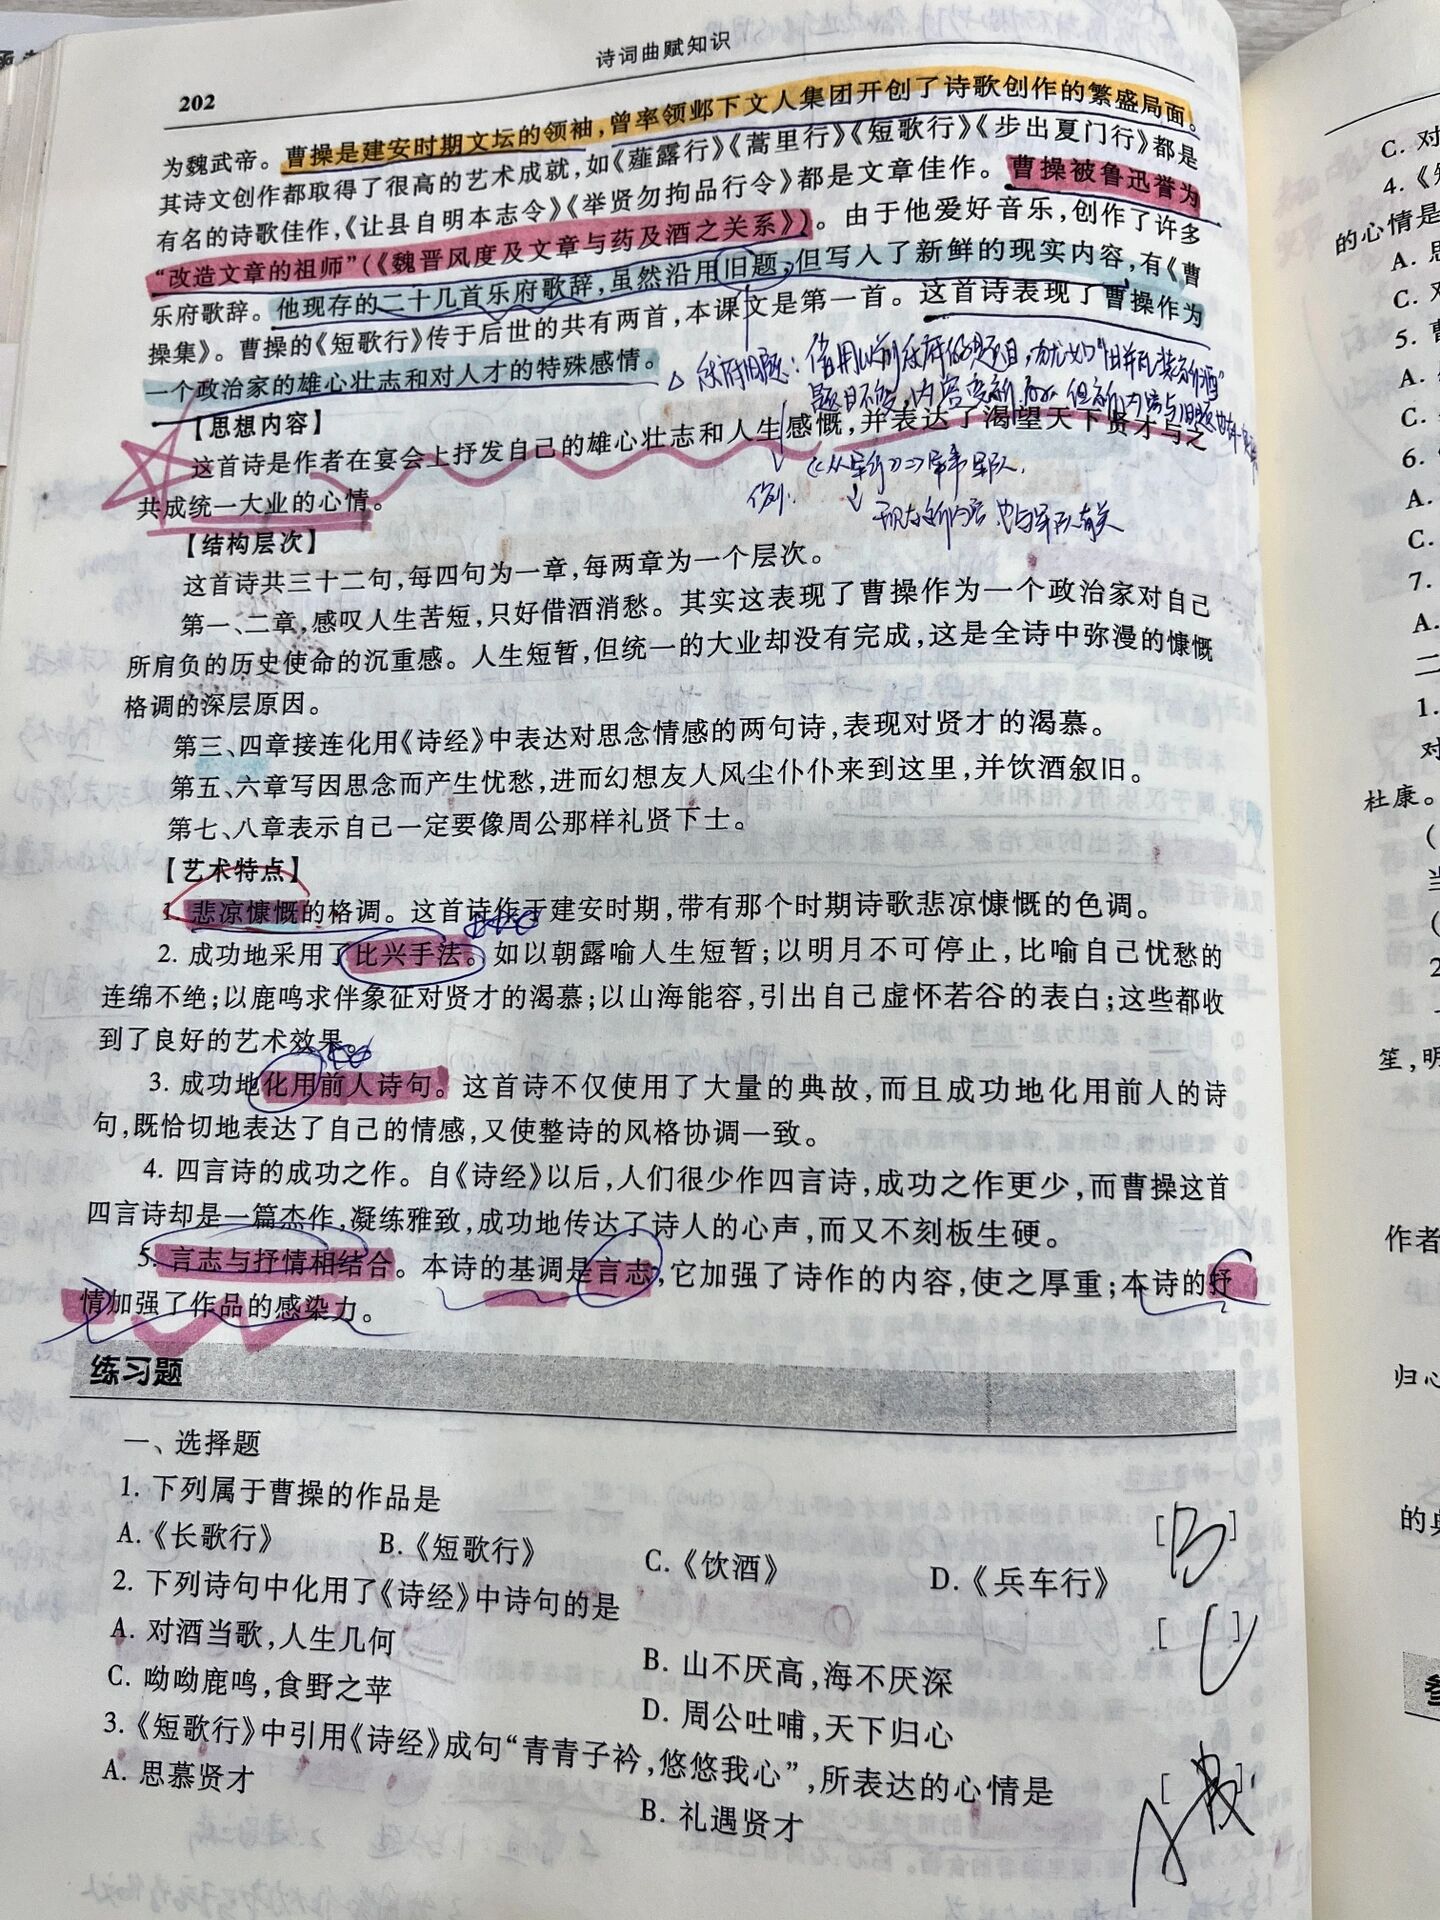 诗词曲赋知识
202
为魏武帝。曹操是建安时期文坛的领袖,曾率领邺下文人集团开创了诗歌创作的繁盛局面。
其诗文创作都取得了很高的艺术成就,如《薤露行》《蒿里行》《短歌行》《步出夏门行》都是
有名的诗歌佳作,《让县自明本志令》《举贤勿拘品行令》都是文章佳作。曹操被鲁迅誉为
“改造文章的祖师”(《魏晋风度及文章与药及酒之关系》)。由于他爱好音乐,创作了许多
乐府歌辞。他现存的二十几首乐府歌辞,虽然沿用旧题,但写入了新鲜的现实内容,有《曹
操集》。曹操的《短歌行》传于后世的共有两首,本课文是第一首。这首诗表现了曹操作为
一个政治家的雄心壮志和对人才的特殊感情。
乐府旧题:借用以前乐府的题目,尤如“旧瓶装新酒”
题目不变,内容变新
【思想内容】
这首诗是作者在宴会上抒发自己的雄心壮志和人生感慨,并表达了渴望天下贤才与之
共成统一大业的心情。
例.《从军行》
现在新内容也与军队有关
【结构层次】
这首诗共三十二句,每四句为一章,每两章为一个层次。
第一、二章,感叹人生苦短,只好借酒消愁。其实这表现了曹操作为一个政治家对自己
所肩负的历史使命的沉重感。人生短暂,但统一的大业却没有完成,这是全诗中弥漫的慷慨
格调的深层原因。
第三、四章接连化用《诗经》中表达对思念情感的两句诗,表现对贤才的渴慕。
第五、六章写因思念而产生忧愁,进而幻想友人风尘仆仆来到这里,并饮酒叙旧。
第七、八章表示自己一定要像周公那样礼贤下士。
【艺术特点】
1. 悲凉慷慨的格调。这首诗作于建安时期,带有那个时期诗歌悲凉慷慨的色调。
2. 成功地采用了比兴手法。如以朝露喻人生短暂;以明月不可停止,比喻自己忧愁的
连绵不绝;以鹿鸣求伴象征对贤才的渴慕;以山海能容,引出自己虚怀若谷的表白;这些都收
到了良好的艺术效果。
3. 成功地化用前人诗句。这首诗不仅使用了大量的典故,而且成功地化用前人的诗
句,既恰切地表达了自己的情感,又使整诗的风格协调一致。
4. 四言诗的成功之作。自《诗经》以后,人们很少作四言诗,成功之作更少,而曹操这首
四言诗却是一篇杰作,凝练雅致,成功地传达了诗人的心声,而又不刻板生硬。
5. 言志与抒情相结合。本诗的基调是言志,它加强了诗作的内容,使之厚重;本诗的抒
情加强了作品的感染力。
练习题
一、选择题
1. 下列属于曹操的作品是 [B]
A.《长歌行》 B.《短歌行》 C.《饮酒》 D.《兵车行》
2. 下列诗句中化用了《诗经》中诗句的是 [C]
A. 对酒当歌,人生几何 B. 山不厌高,海不厌深
C. 呦呦鹿鸣,食野之苹 D. 周公吐哺,天下归心
3.《短歌行》中引用《诗经》成句“青青子衿,悠悠我心”,所表达的心情是 [ ]
A
A. 思慕贤才 B. 礼遇贤才
C. 对
4.《
的心情是
A. 思
C. 对
5. 曹
A.
C.
6.
A.
C.
7.
A.
二
1.
对
杜康。
(
当
(
2
笙,明
作者
归心
之
的典